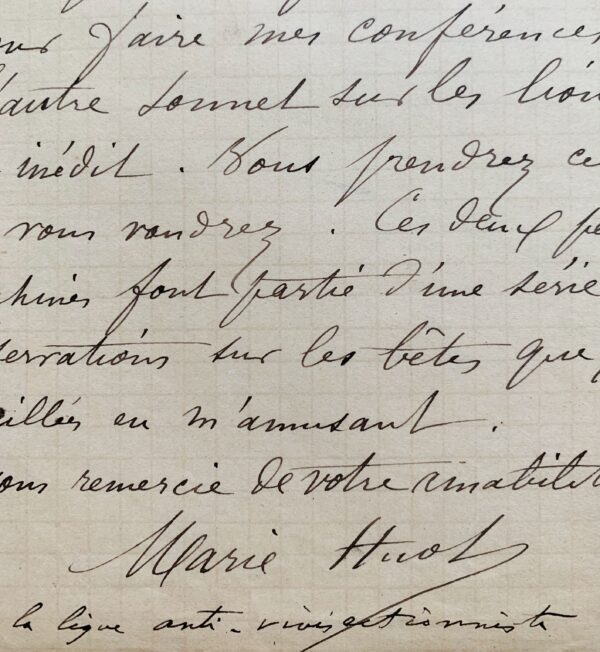 our faire mes conférences
'autre sonnet sur les lion
inédit. Vous prendrez ce
vous voudrez. Ces deux pe
chines font partie d'une série
servations sur les bêtes que
eillées en m'amusant.
ous remercie de votre amabilit
Marie Huot
la ligue anti-vivisectionniste